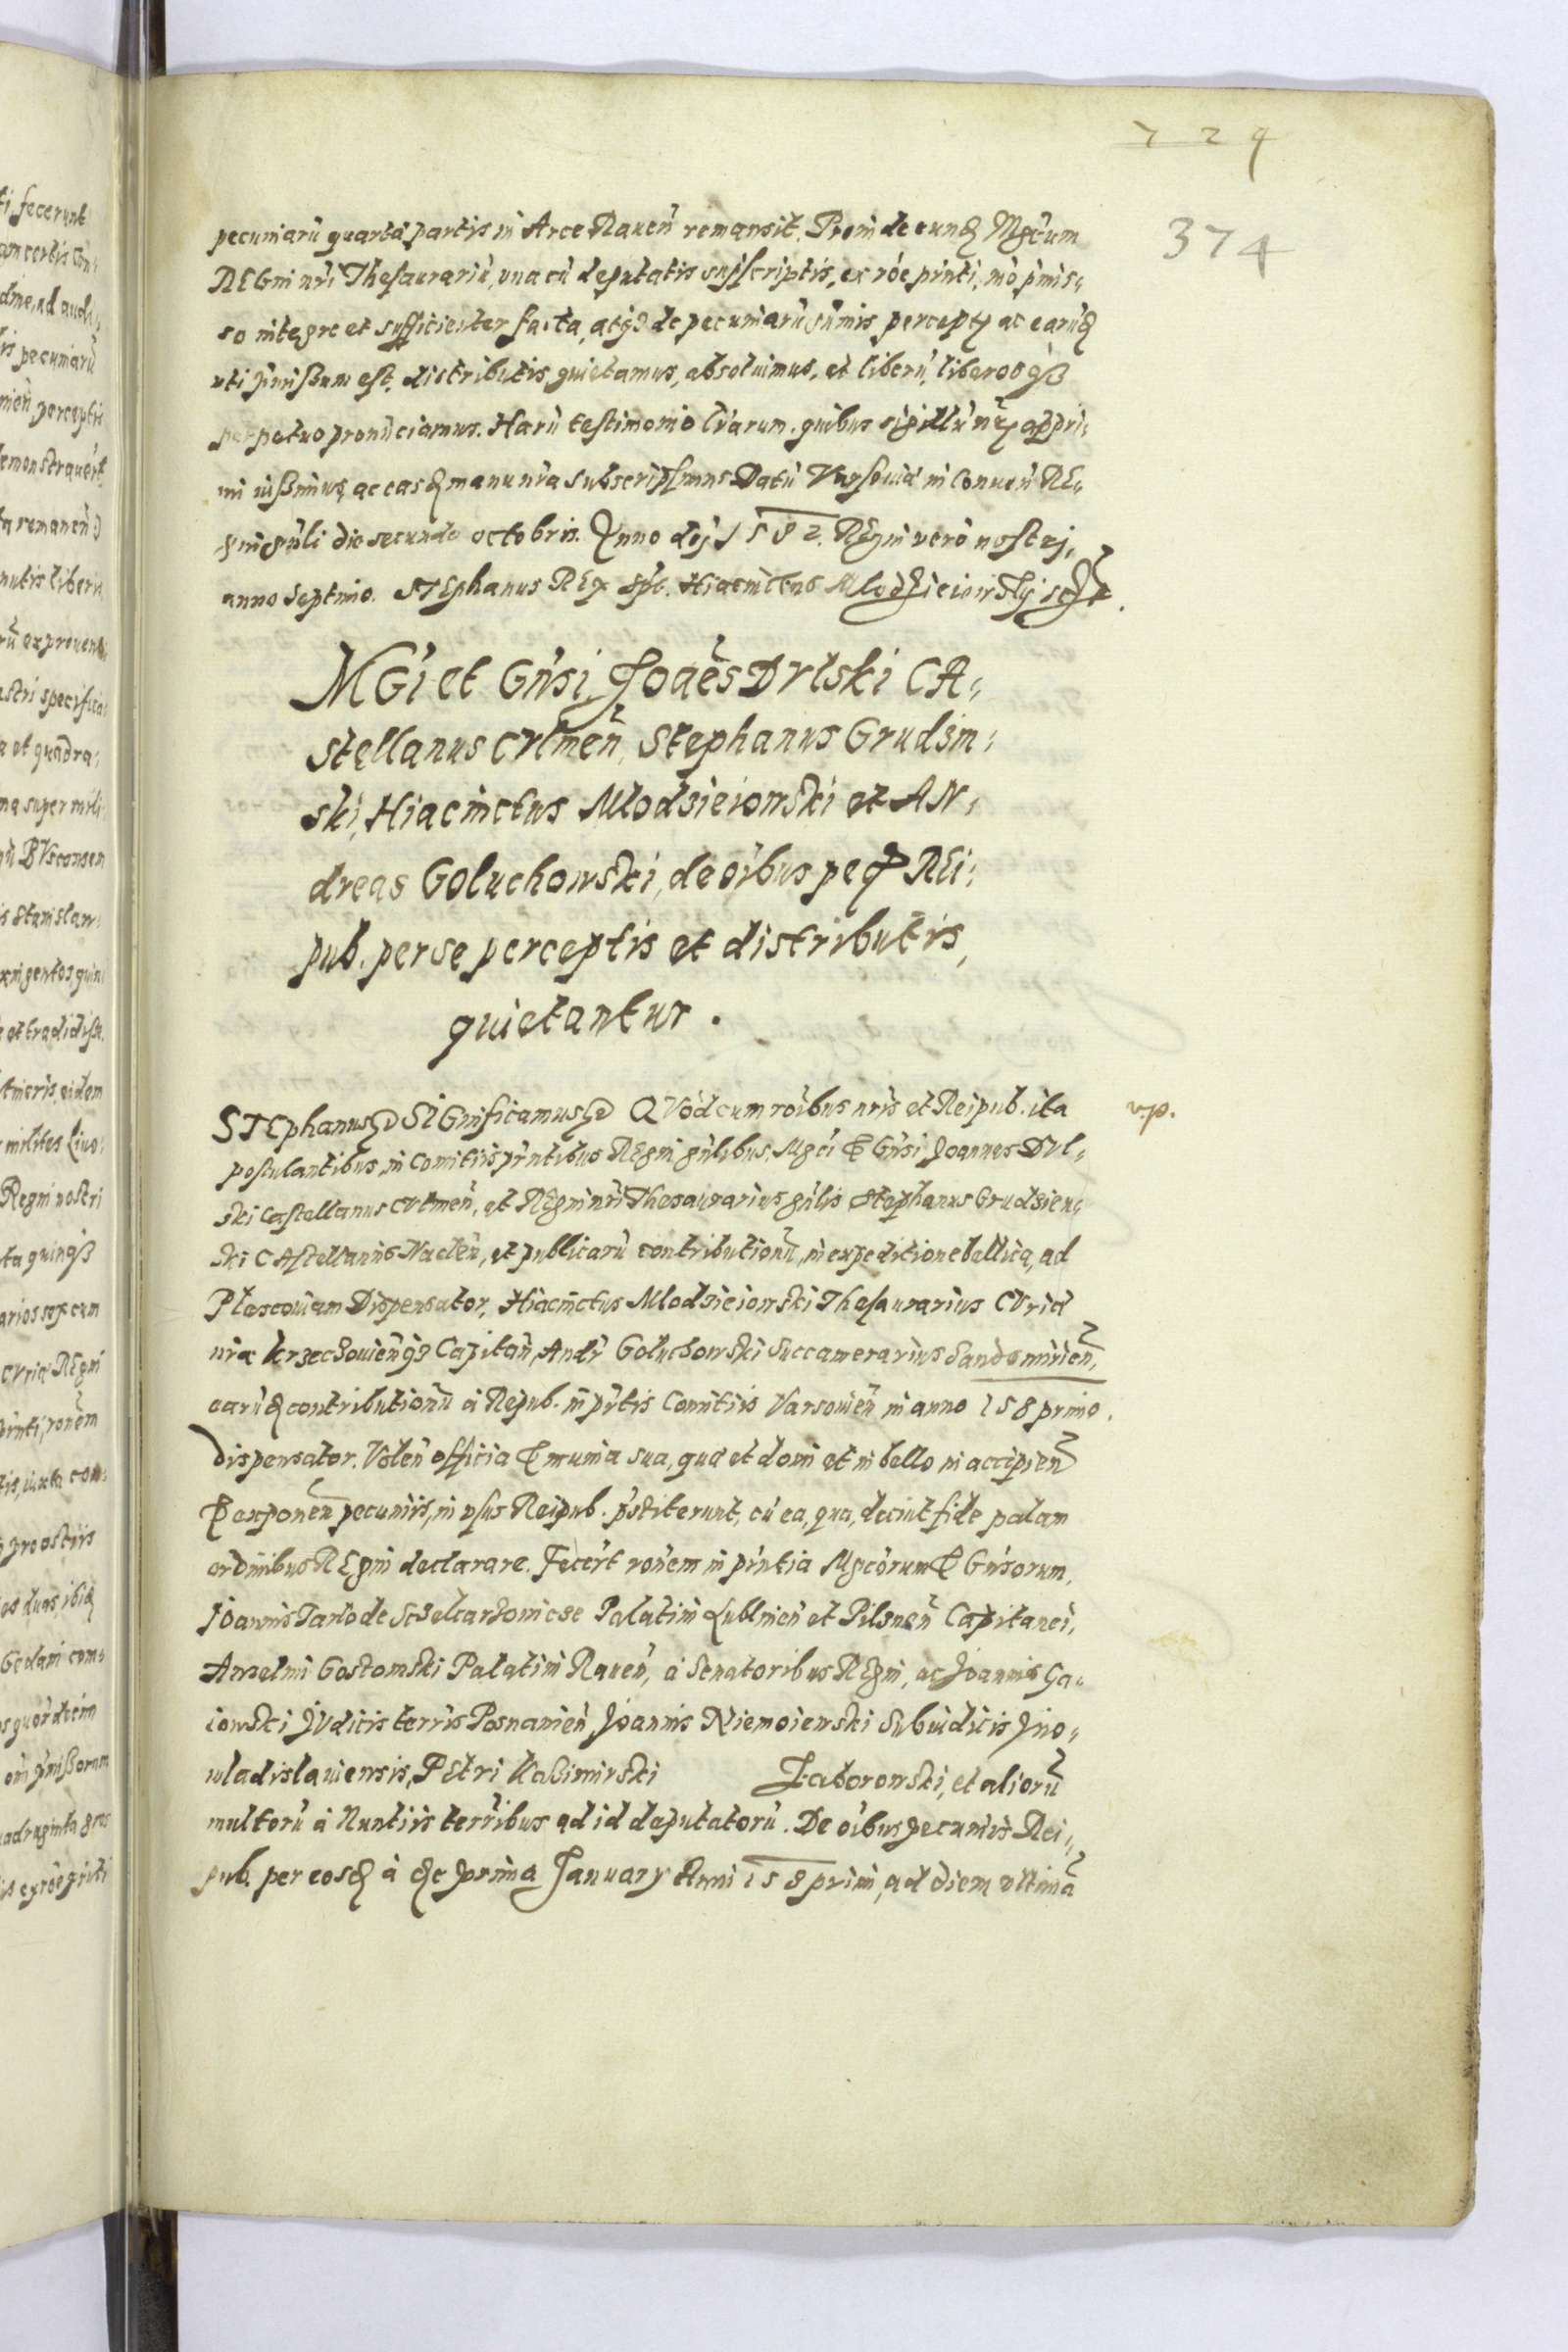 729
374
pecuniarū quartæ partis in Arce Rauen̄ remansit. Proinde eundē Mgcūm
REGni nr̄i Thesaurariū, una cū deputatis supscriptis, ex rōe pr̄nti, mō pmis,
so integre et sufficienter facta, atqȝ de pecuniarū sūmis percept. ac earūdē
uti pmissum est, distributis, quietamus, absoluimus, et liberū, liberosqȝ
perpetuo pronūciamus. Harū testimonio lr̄arum. quibus sigillū nr̄m appri,
mi iussimus, ac easdē manu nr̄a subscripsimus Datū Varsouiæ in Conuen̄ RE,
gni gn̄li die secunda octobris. Anno dn̄j 1582. Regni vero nostrj,
anno Septimo. STEphanus REx spt. Hiacinctus Mlodzieiowskij scpt.
MGci et Gn̄si Joāes Dvlski CA,
stellanus cvlmen̄, Stephanus Grudsin,
ski, Hiacinctus Mlodsieiowski et AN,
dreas Goluchowski, de oībus peq REi,
pub. per se perceptis et distributis,
quietantur.
STEphanus SIGnificamus QVōd cum rōibus nr̄is et Reipub. ita
vp.
postulantibus in Comitiis pr̄ntibus REgni gn̄libus, Mgci & Gn̄si Joannes DVl,
ski Castellanus cvlmen̄, et REgni nr̄i Thesaurarius gn̄lis Stephanus Grudsien,
ski CAstellanus Naclen̄, et publicarū contributionū, in expeditione bellica, ad
Plescouiam Dispensator, Hiacinctus Mlodsieiowski Thesaurarius CVriæ
nr̄æ krzeczouien̄qȝ Capitan̄, Andr̄ Goluchowski Succamerarius Sandomirien̄,
earūdē contributionū à Repub. in pr̄tis Comitiis Varsouien̄ in anno 158 primo.
dispensator. Volen̄ officia & munia sua, quæ et domi et in bello in accipien̄
& exponen̄ pecuniis, in usus Reipub. pr̄stiterunt, cū ea, qua, decuit fide palam
ordinibus REgni declarare. Fecert̄ ronem in pr̄ntia Mgcōrum & Gn̄sorum,
Joannis Tarlo de Sczekarzowicze Palatini Lublinen̄ et Pilsnen̄ Capitanei,
Anselmi Gostomski Palatini Rauen̄, à Senatoribus REgni, ac Joannis Ga,
iowski JVdicis terris Posnanien̄ Joannis Niemoiewski Subiudicis Jno,
wladislauiensis, PEtri Kasimirski Jaworowski, et aliorū
multorū à Nuntiis terribus ad id deputatorū. De oībus pecuniis Rei,
pub. per eosdē à die prima January Anni 158 primi, ad diem ultimā